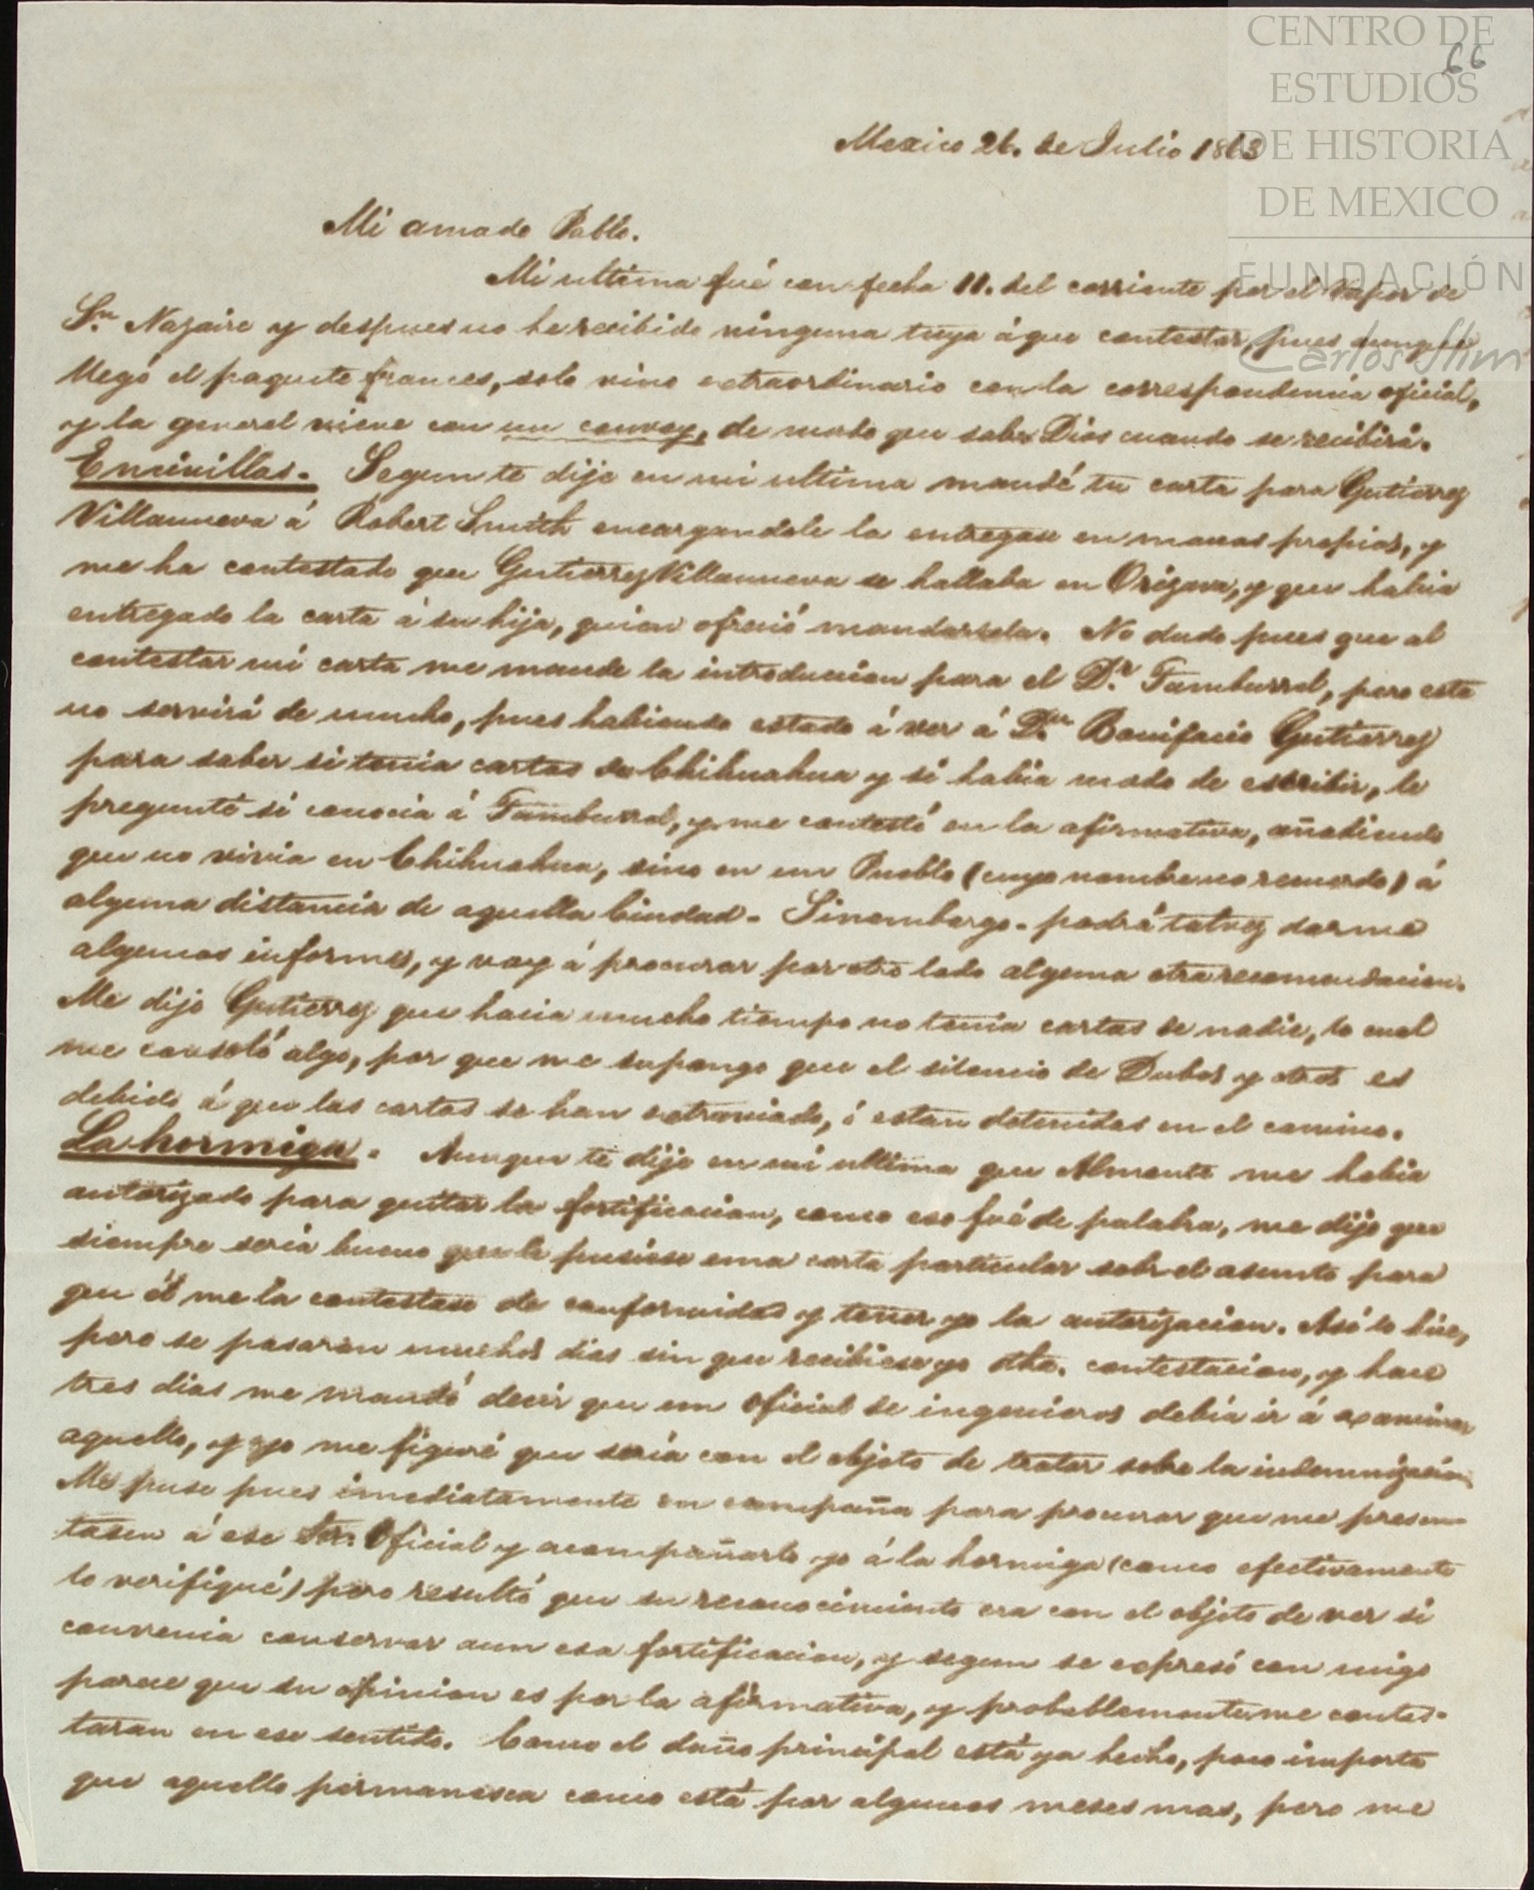 CENTRO DE
ESTUDIOS
DE HISTORIA
DE MEXICO
FUNDACIÓN
Carlos Slim
66
Mexico 26. de Julio 1863
Mi amado Pablo.
Mi ultima fué con fecha 11. del corriente por el vapor de
Sn. Nazaire y despues no he recibido ninguna tuya á que contestar, pues aunque
llegó el paquete frances, solo vino extraordinario con la correspondencia oficial,
y la general viene con un convoy, de modo que sabe Dios cuando se recibirá.
Encinillas. Segun te dije en mi ultima mandé tu carta para Gutierrez
Villanueva á Robert Smith encargandole la entregase en manos propias, y
me ha contestado que Gutierrez Villanueva se hallaba en Orizava, y que habia
entregado la carta á su hija, quien ofreció mandarsela. No dudo pues que al
contestar mi carta me mande la introduccion para el Dr. Tamburrel, pero esta
no servirá de mucho, pues habiendo estado á ver á Dn. Bonifacio Gutierrez
para saber si tenia cartas de Chihuahua y si habia modo de escribir, le
pregunté si conocia á Tamburrel, y me contestó en la afirmativa, añadiendo
que no vivia en Chihuahua, sino en un Pueblo (cuyo nombre no recuerdo) á
alguna distancia de aquella Ciudad. Sinembargo. podrá talvez darme
algunos informes, y voy á procurar por otro lado alguna otra recomendacion.
Me dijo Gutierrez que hacia mucho tiempo no tenia cartas de nadie, lo cual
me consoló algo, por que me supongo que el silencio de Dubos y otros es
debido á que las cartas se han extraviado, ó estan detenidas en el camino.
La hormiga. Aunque te dije en mi ultima que Almonte me habia
autorizado para quitar la fortificacion, como eso fué de palabra, me dijo que
siempre seria bueno que le pusiese una carta particular sobre el asunto para
que él me la contestase de conformidad y tener yo la autorizacion. Asi lo hice,
pero se pasaron muchos dias sin que recibiese yo dha. contestacion, y hace
tres dias me mandó decir que un Oficial de ingenieros debia ir á examinar
aquello, y yo me figuré que seria con el objeto de tratar sobre la indemnizacion
Me puse pues imediatamente en campaña para procurar que me presen-
tasen á ese Sor. Oficial y acompañarlo yo á la hormiga (como efectivamente
lo verifiqué) pero resultó que su reconocimiento era con el objeto de ver si
convenia conservar aun esa fortificacion, y segun se expresó con migo
parece que su opinion es por la afirmativa, y probablemente me contes-
taran en ese sentido. Como el daño principal está ya hecho, poco importa
que aquello permanesca como está por algunos meses mas, pero me